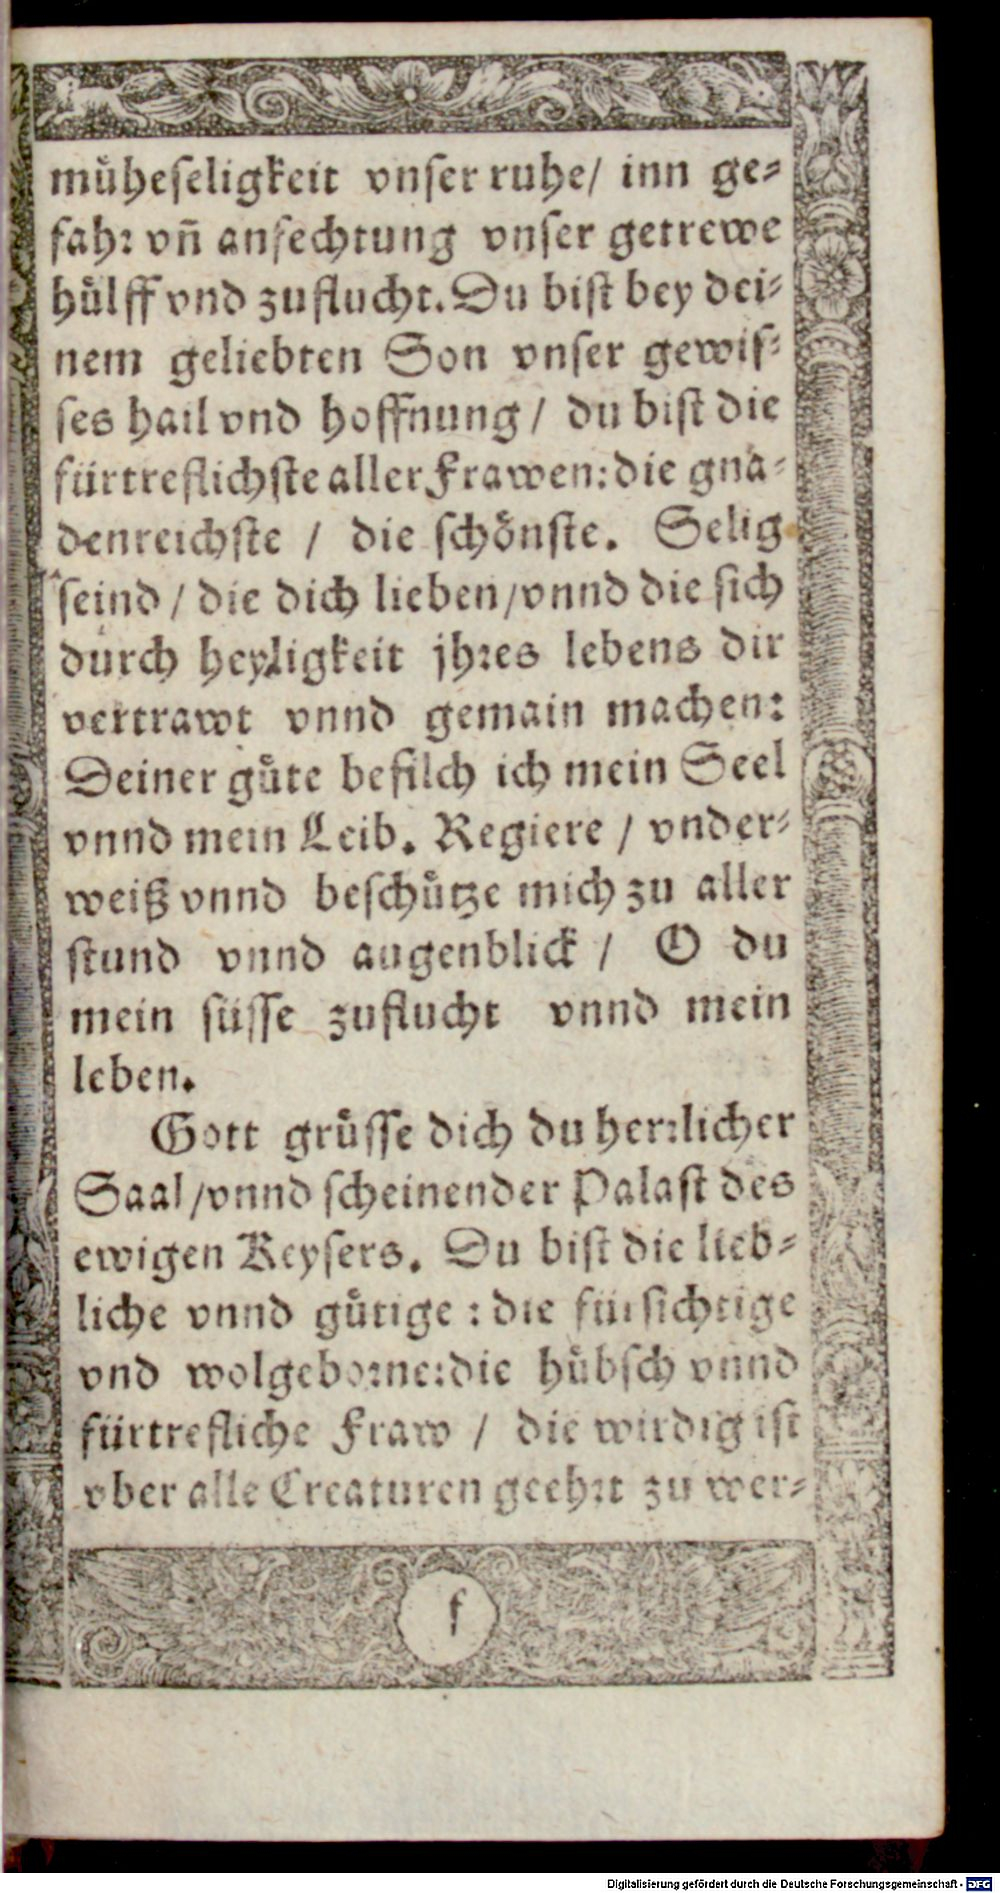 muͤheſeligkeit vnſer ruhe/ inn ge-
fahꝛ vñ anfechtung vnſer getrewe
huͤlff vnd zuflucht. Du biſt bey dei-
nem geliebten Son vnſer gewiſ-
ſes hail vnd hoffnung / du biſt die
fürtreflichſte aller Frawen: die gna-
denreichſte / die ſchoͤnſte. Selig
ſeind / die dich lieben / vnnd die ſich
durch heyligkeit jhꝛes lebens dir
vertrawt vnnd gemain machen:
Deiner guͤte befilch ich mein Seel
vnnd mein Leib. Regiere / vnder-
weiß vnnd beſchuͤtze mich zu aller
ſtund vnnd augenblick / O du
mein ſüſſe zuflucht vnnd mein
leben.
Gott gruͤſſe dich du herꝛlicher
Saal / vnnd ſcheinender Palaſt des
ewigen Keyſers. Du biſt die lieb-
liche vnnd guͤtige : die fürſichtige
vnd wolgeboꝛne: die huͤbſch vnnd
fürtrefliche Fraw / die wirdig iſt
vber alle Creaturen geehꝛt zu wer-
f
Digitalisierung gefördert durch die Deutsche Forschungsgemeinschaft - DFG